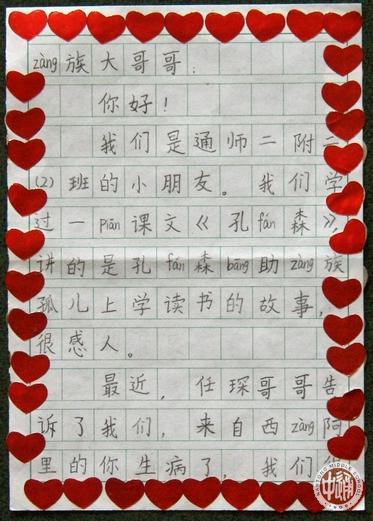 zàng族大哥哥：
你好！
我们是通师二附二
(2)班的小朋友。我们学
过一piān课文《孔fán森》，
讲的是孔fán森bāng助zàng族
孤儿上学读书的故事，
很感人。
最近，任琛哥哥告
诉了我们，来自西zàng阿
里的你生病了，我们很